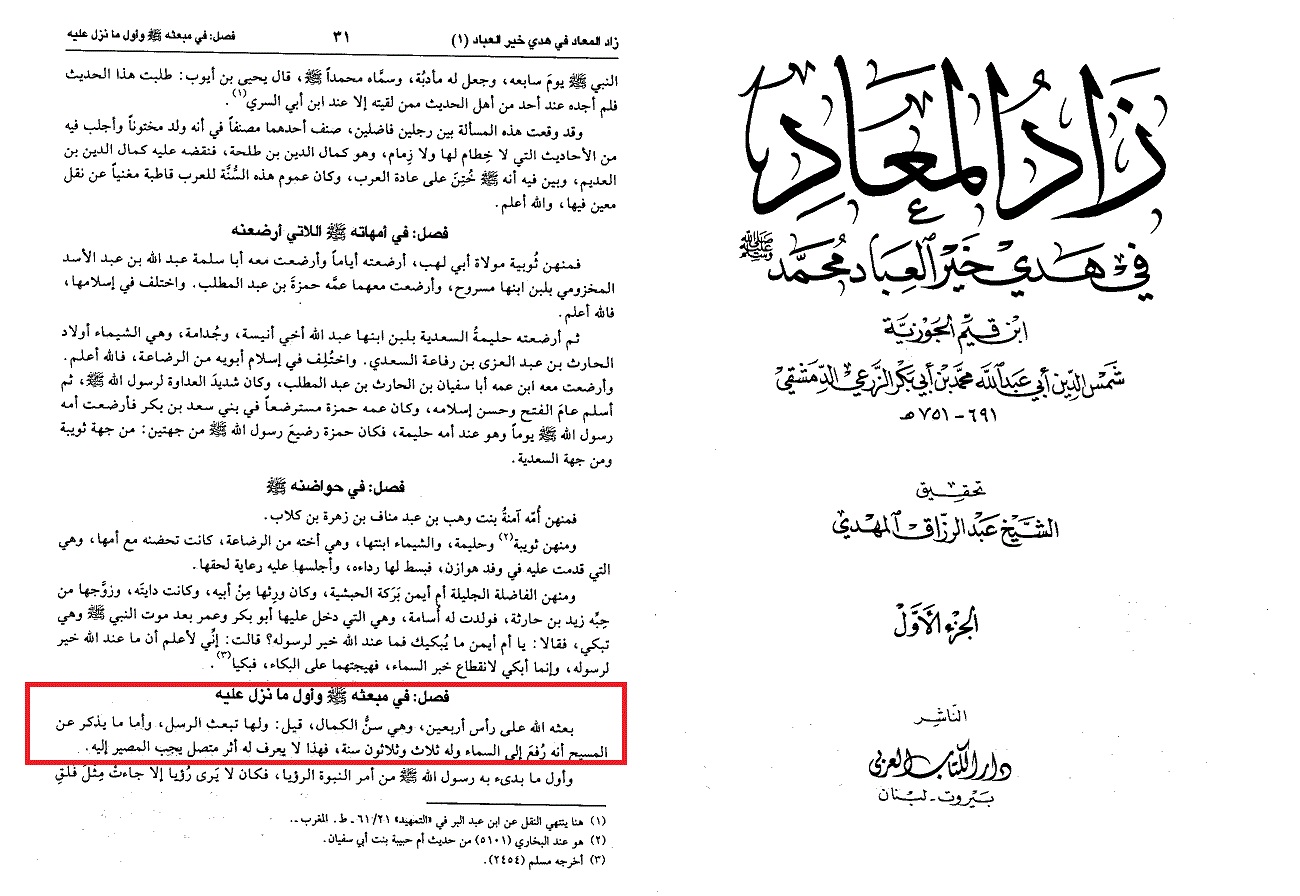 زَادُ المَعَادِ
في هَدي خَيْرِ العِبَاد مُحَمَّد ﷺ
ابن قيم الجوزية
شمس الدين أبي عبد الله محمد بن أبي بكر الزرعي الدمشقي
٦٩١ - ٧٥١ هـ
تحقيق
الشيخ عبد الرزاق المهدي
الجزء الأول
الناشر
دار الكتاب العربي
بيروت - لبنان
زاد المعاد في هدي خير العباد (١) ٣١ فصل: في مبعثه ﷺ وأول ما نزل عليه
النبي ﷺ يومَ سابعه، وجعل له مأدبُة، وسمَّاه محمداً ﷺ، قال يحيى بن أيوب: طلبت هذا الحديث
فلم أجده عند أحد من أهل الحديث ممن لقيته إلا عند ابن أبي السري(١).
وقد وقعت هذه المسألة بين رجلين فاضلين، صنف أحدهما مصنفاً في أنه ولد مختوناً وأجلب فيه
من الأحاديث التي لا خِطام لها ولا زِمام، وهو كمال الدين بن طلحة، فنقضه عليه كمال الدين بن
العديم، وبين فيه أنه ﷺ خُتِنَ على عادة العرب، وكان عموم هذه السُّنَّة للعرب قاطبة مغنياً عن نقل
معين فيها، والله أعلم.
فصل: في أمهاته ﷺ اللاتي أرضعنه
فمنهن ثُويبة مولاة أبي لهب، أرضعته أياماً وأرضعت معه أبا سلمة عبد الله بن عبد الأسد
المخزومي بلبن ابنها مسروح، وأرضعت معهما عمَّه حمزةَ بن عبد المطلب. واختلف في إسلامها،
فالله أعلم.
ثم أرضعته حليمةُ السعدية بلبن ابنها عبد الله أخي أنيسة، وجُدامة، وهي الشيماء أولاد
الحارث بن عبد العزى بن رفاعة السعدي. واختُلِف في إسلام أبويه من الرضاعة، فالله أعلم.
وأرضعت معه ابن عمه أبا سفيان بن الحارث بن عبد المطلب، وكان شديدَ العداوة لرسول الله ﷺ، ثم
أسلم عامَ الفتح وحسن إسلامه، وكان عمه حمزة مسترضعاً في بني سعد بن بكر فأرضعت أمه
رسول الله ﷺ يوماً وهو عند أمه حليمة، فكان حمزة رضيعَ رسول الله ﷺ من جهتين: من جهة ثويبة
ومن جهة السعدية.
فصل: في حواضنه ﷺ
فمنهن أُمّه آمنةُ بنت وهب بن عبد مناف بن زهرة بن كلاب.
ومنهن ثويبة(٢) وحليمة، والشيماء ابنتها، وهي أخته من الرضاعة، كانت تحضنه مع أمها، وهي
التي قدمت عليه في وفد هوازن، فبسط لها رداءه، وأجلسها عليه رعاية لحقها.
ومنهن الفاضلة الجليلة أم أيمن بَرَكة الحبشية، وكان ورِثها مِنْ أبيه، وكانت دايتَه، وزوَّجها من
حِبِّه زيد بن حارثة، فولدت له أسامة، وهي التي دخل عليها أبو بكر وعمر بعد موت النبي ﷺ وهي
تبكي، فقالا: يا أم أيمن ما يُبكيك فما عند الله خير لرسوله؟ قالت: إنِّي لأعلم أن ما عند الله خير
لرسوله، وإنما أبكي لانقطاع خبر السماء، فهيجتهما على البكاء، فبكيا(٣).
فصل: في مبعثه ﷺ وأول ما نزل عليه
بعثه الله على رأس أربعين، وهي سنُّ الكمال، قيل: ولها تبعث الرسل، وأما ما يذكر عن
المسيح أنه رُفعَ إلى السماء وله ثلاث وثلاثون سنة، فهذا لا يعرف له أثر متصل يجب المصير إليه.
وأول ما بدىء به رسول الله ﷺ من أمر النبوة الرؤيا، فكان لا يَرى رُؤيا إلا جاءتْ مِثْلَ فَلَقِ
(١) هنا ينتهي النقل عن ابن عبد البر في «التمهيد» ٦١/٢١ - ط. المغرب -.
(٢) هو عند البخاري (٥١٠١) من حديث أم حبيبة بنت أبي سفيان.
(٣) أخرجه مسلم (٢٤٥٤).